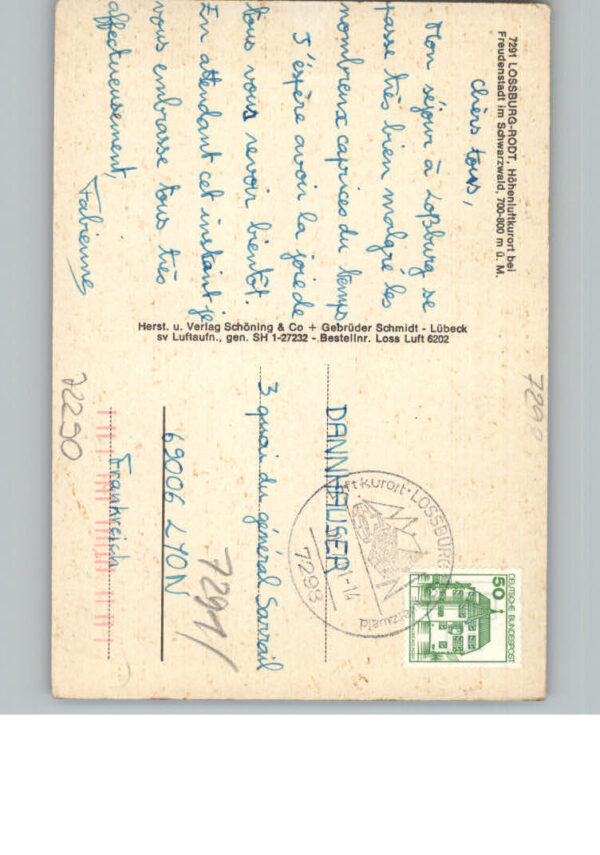 7291 LOSSBURG-RODT, Höhenluftkurort bei
Freudenstadt im Schwarzwald, 700-800 m ü. M.
Chers tous,
Mon séjour à Loßburg se
passe très bien malgré les
nombreux caprices du temps
J'espère avoir la joie de
tous vous revoir bientôt.
En attendant cet instant je
vous embrasse tous très
affectueusement,
Fabienne
Herst. u. Verlag Schöning & Co + Gebrüder Schmidt - Lübeck
sv Luftaufn., gen. SH 1-27232 - Bestellnr. Loss Luft 6202
DEUTSCHE BUNDESPOST
50
LOSSBURG
7298
-14
DANNHAUSER
3 quai du général Sarrail
69006 LYON
Frankreich
7291/
72290